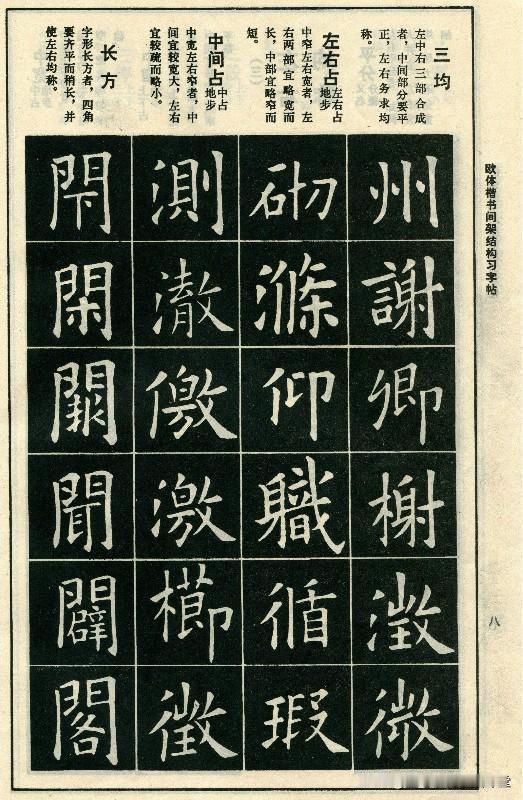 欧体楷书间架结构习字帖
八
三均
左中右三部合成
者，中间部分要平
正，左右务求均
称。
州謝卿榭澂微
左右占 左右占地步
中窄左右宽者，左
右两部宜略宽而
长，中部宜略窄而
短。
砌滌仰職循瑕
中间占 中占地步
中宽左右窄者，中
间宜较宽大，左右
宜较疏而略小。
測澈儌激櫛徵
长方
字形长方者，四角
要齐平而稍长，并
使左右均称。
閇閑聞闢閣